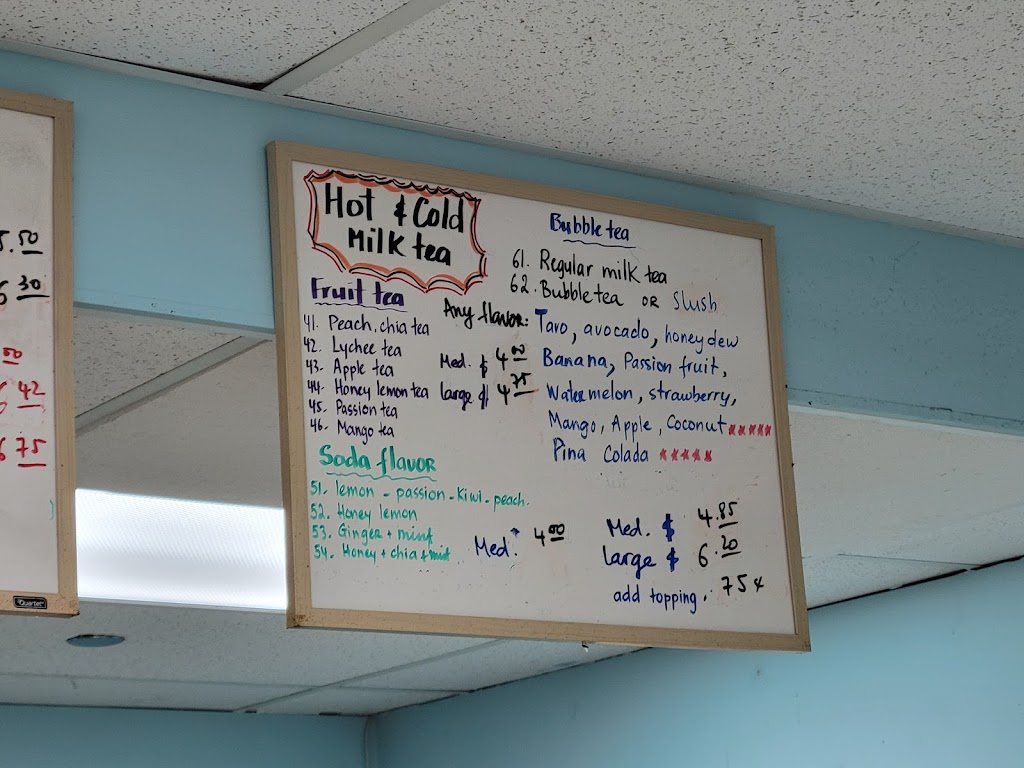 5.50
6 30
50
6 42
6 75
Quartet
Hot & Cold
Milk tea
Fruit tea
41. Peach, chia tea
42. Lychee tea
43. Apple tea
44. Honey lemon tea
45. Passion tea
46. Mango tea
Med. $ 4 00
large $ 4 75
Soda flavor
51. lemon - passion - kiwi - peach.
52. Honey lemon
53. Ginger + mint
54. Honey + chia + mint
Med. 4 00
Bubble tea
61. Regular milk tea
62. Bubble tea OR Slush
Any flavor: Taro, avocado, honeydew
Banana, Passion fruit,
Watermelon, strawberry,
Mango, Apple, Coconut
Pina Colada
Med. $ 4.85
large $ 6.20
add topping. .75¢